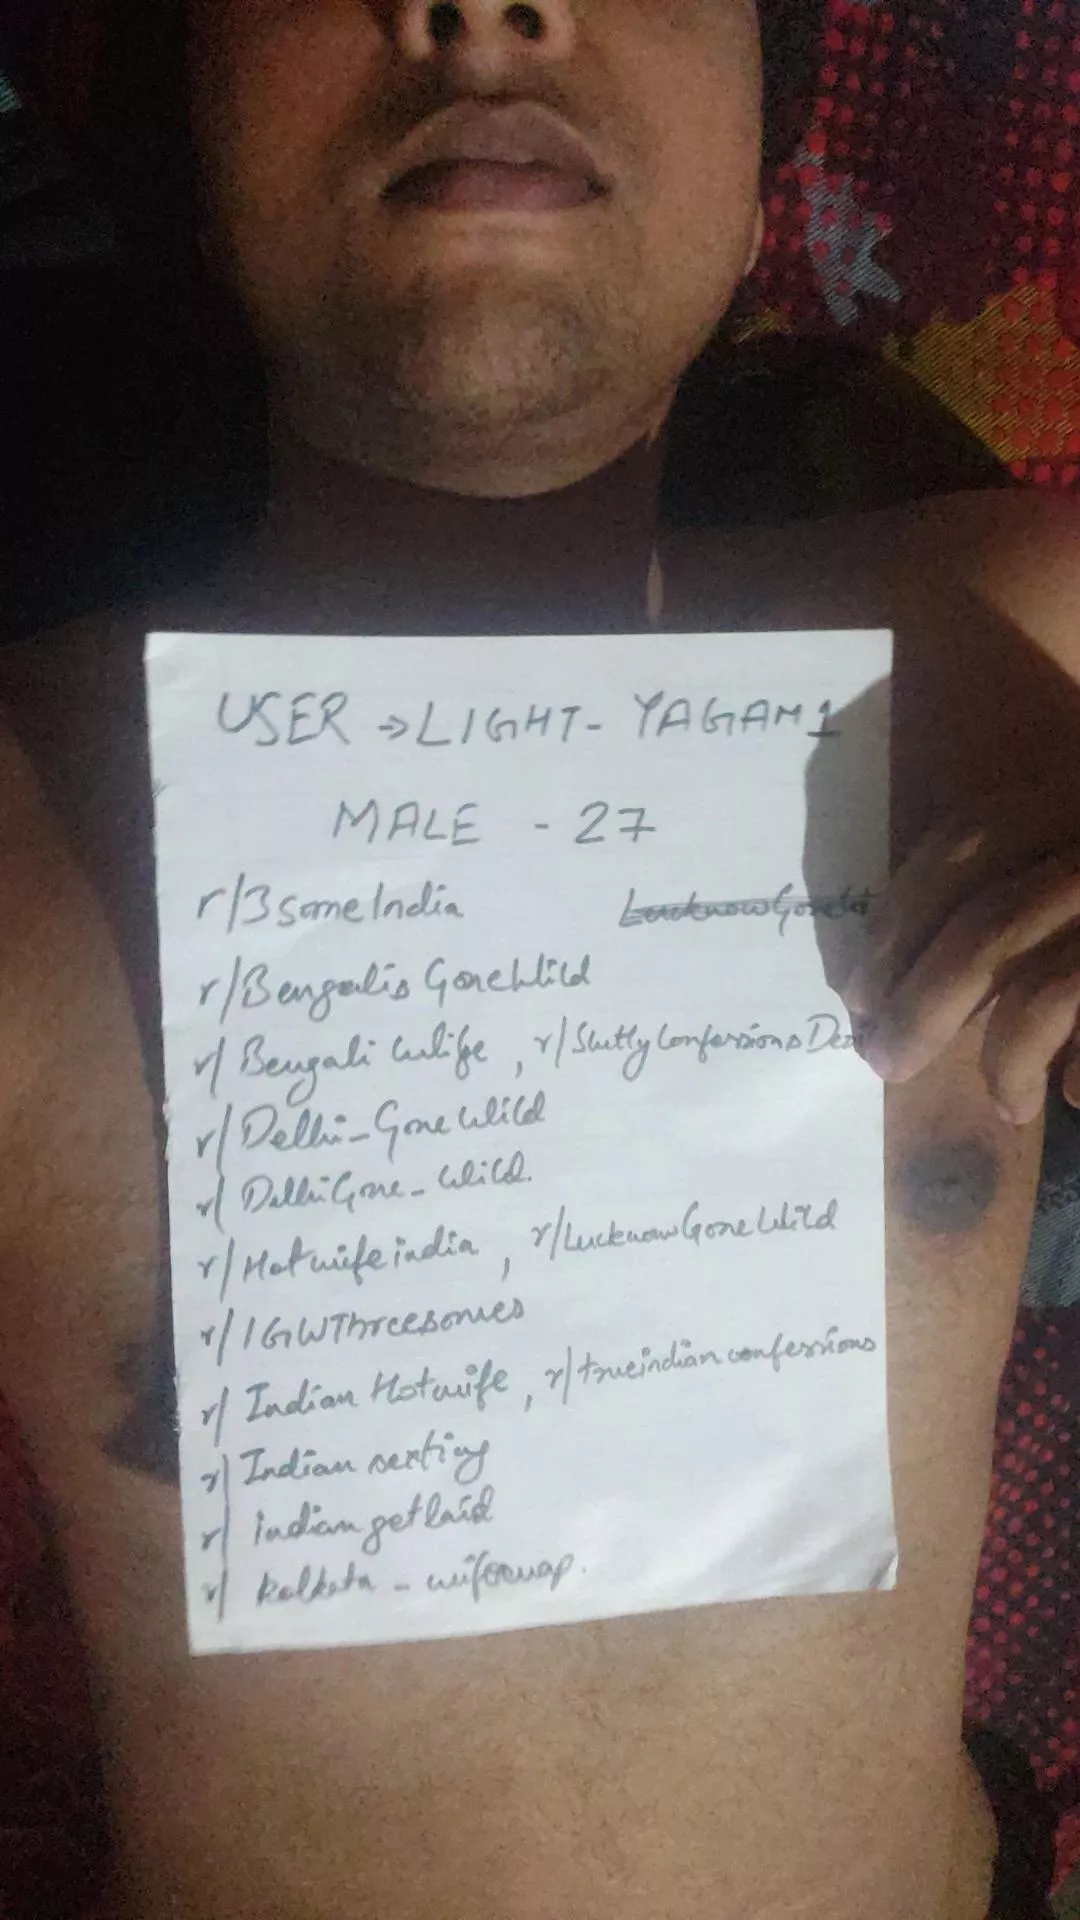 USER → LIGHT- YAGAM1
MALE - 27
r/3someIndia
r/BengalisGoneWild
r/Bengali Wife, r/SluttyConfessionsDesi
r/Delhi-GoneWild
r/DelhiGone-Wild.
r/Hotwifeindia, r/LucknowGoneWild
r/IGWThreesomes
r/Indian Hotwife, r/trueindianconfessions
r/Indian sexting
r/indiangetlaid
r/kolkata-wifeswap.